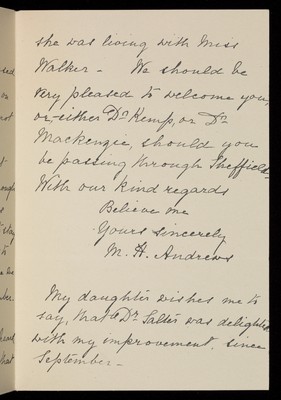 she was living with Miss
Walker - We should be
very pleased to welcome you,
or either Dr Kemp, or Dr
Mackenzie, should you
be passing through Sheffield -
With our kind regards
Believe me
Yours sincerely
M. H. Andrews
My daughter wishes me to
say, that Dr Salter was delighted
with my improvement, since
September -